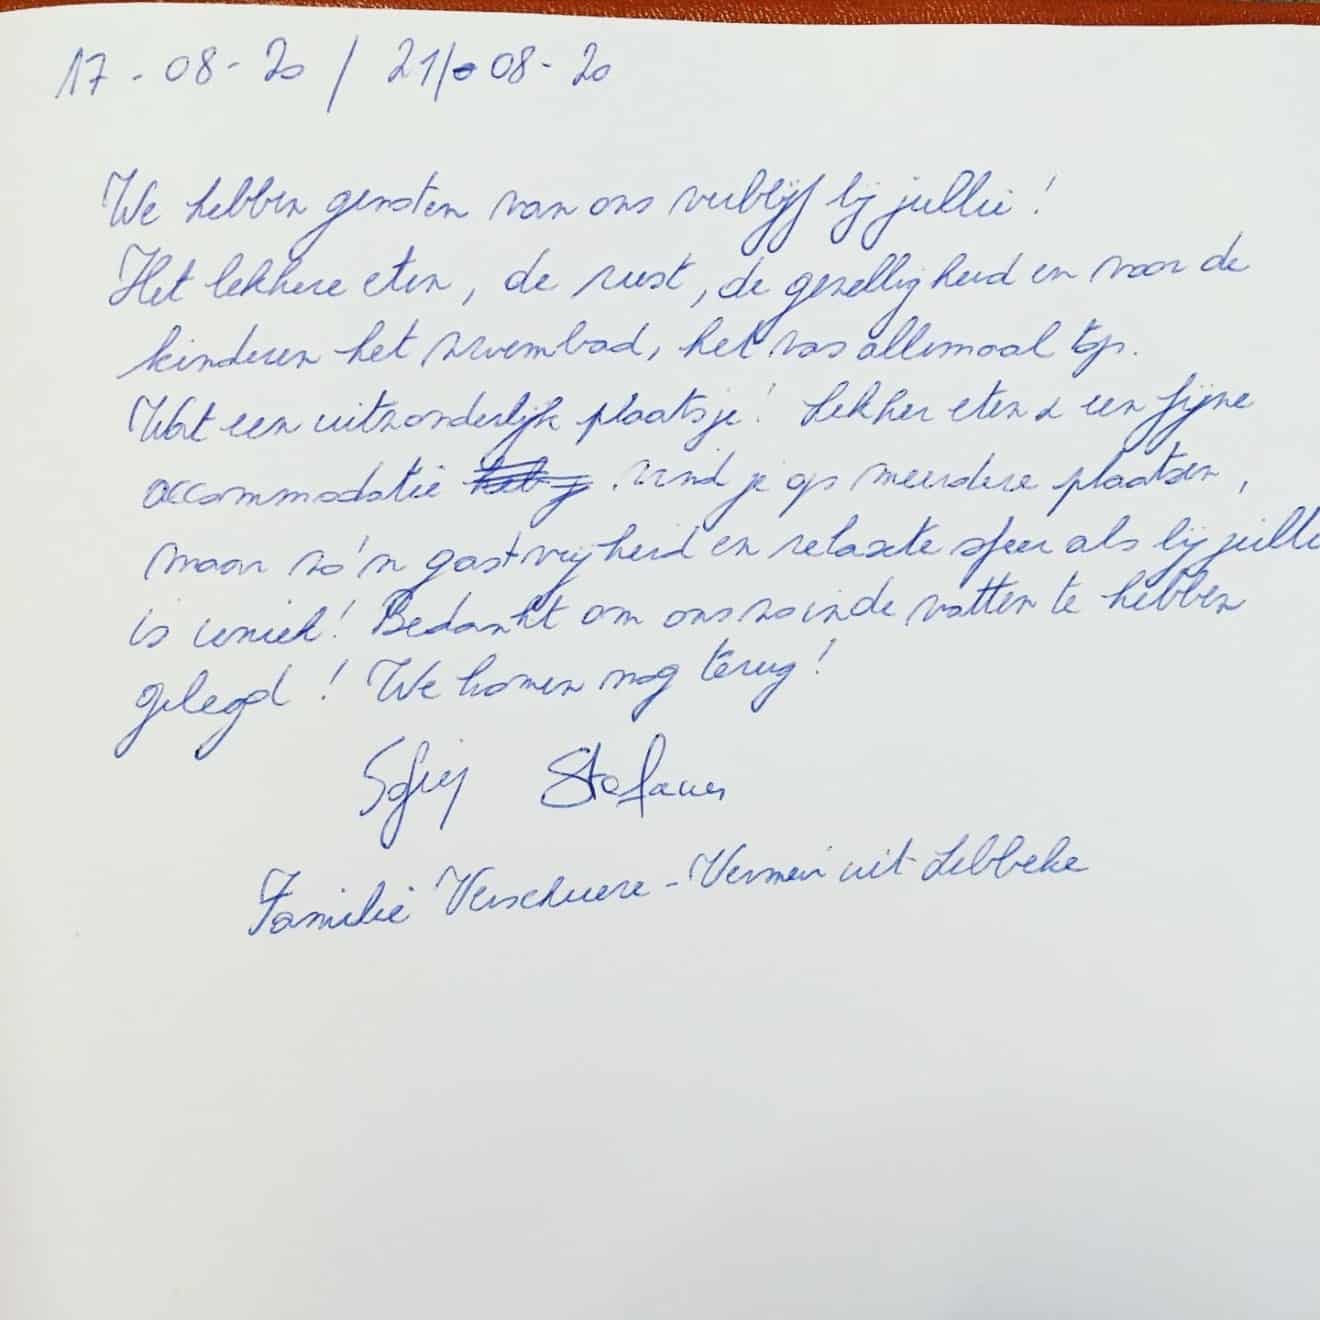 17-08-20 / 21-08-20
We hebben genoten van ons verblijf bij jullie!
Het lekkere eten, de rust, de gezelligheid en voor de
kinderen het zwembad, het was allemaal top.
Wat een uitzonderlijk plaatsje! Lekker eten & een fijne
accommodatie vind je op meerdere plaatsen,
maar zo'n gastvrijheid en relaxte sfeer als bij jullie
is uniek! Bedankt om ons zo in de watten te hebben
gelegd! We komen nog terug!
Familie Verschuere - Vermeir uit Lebbeke